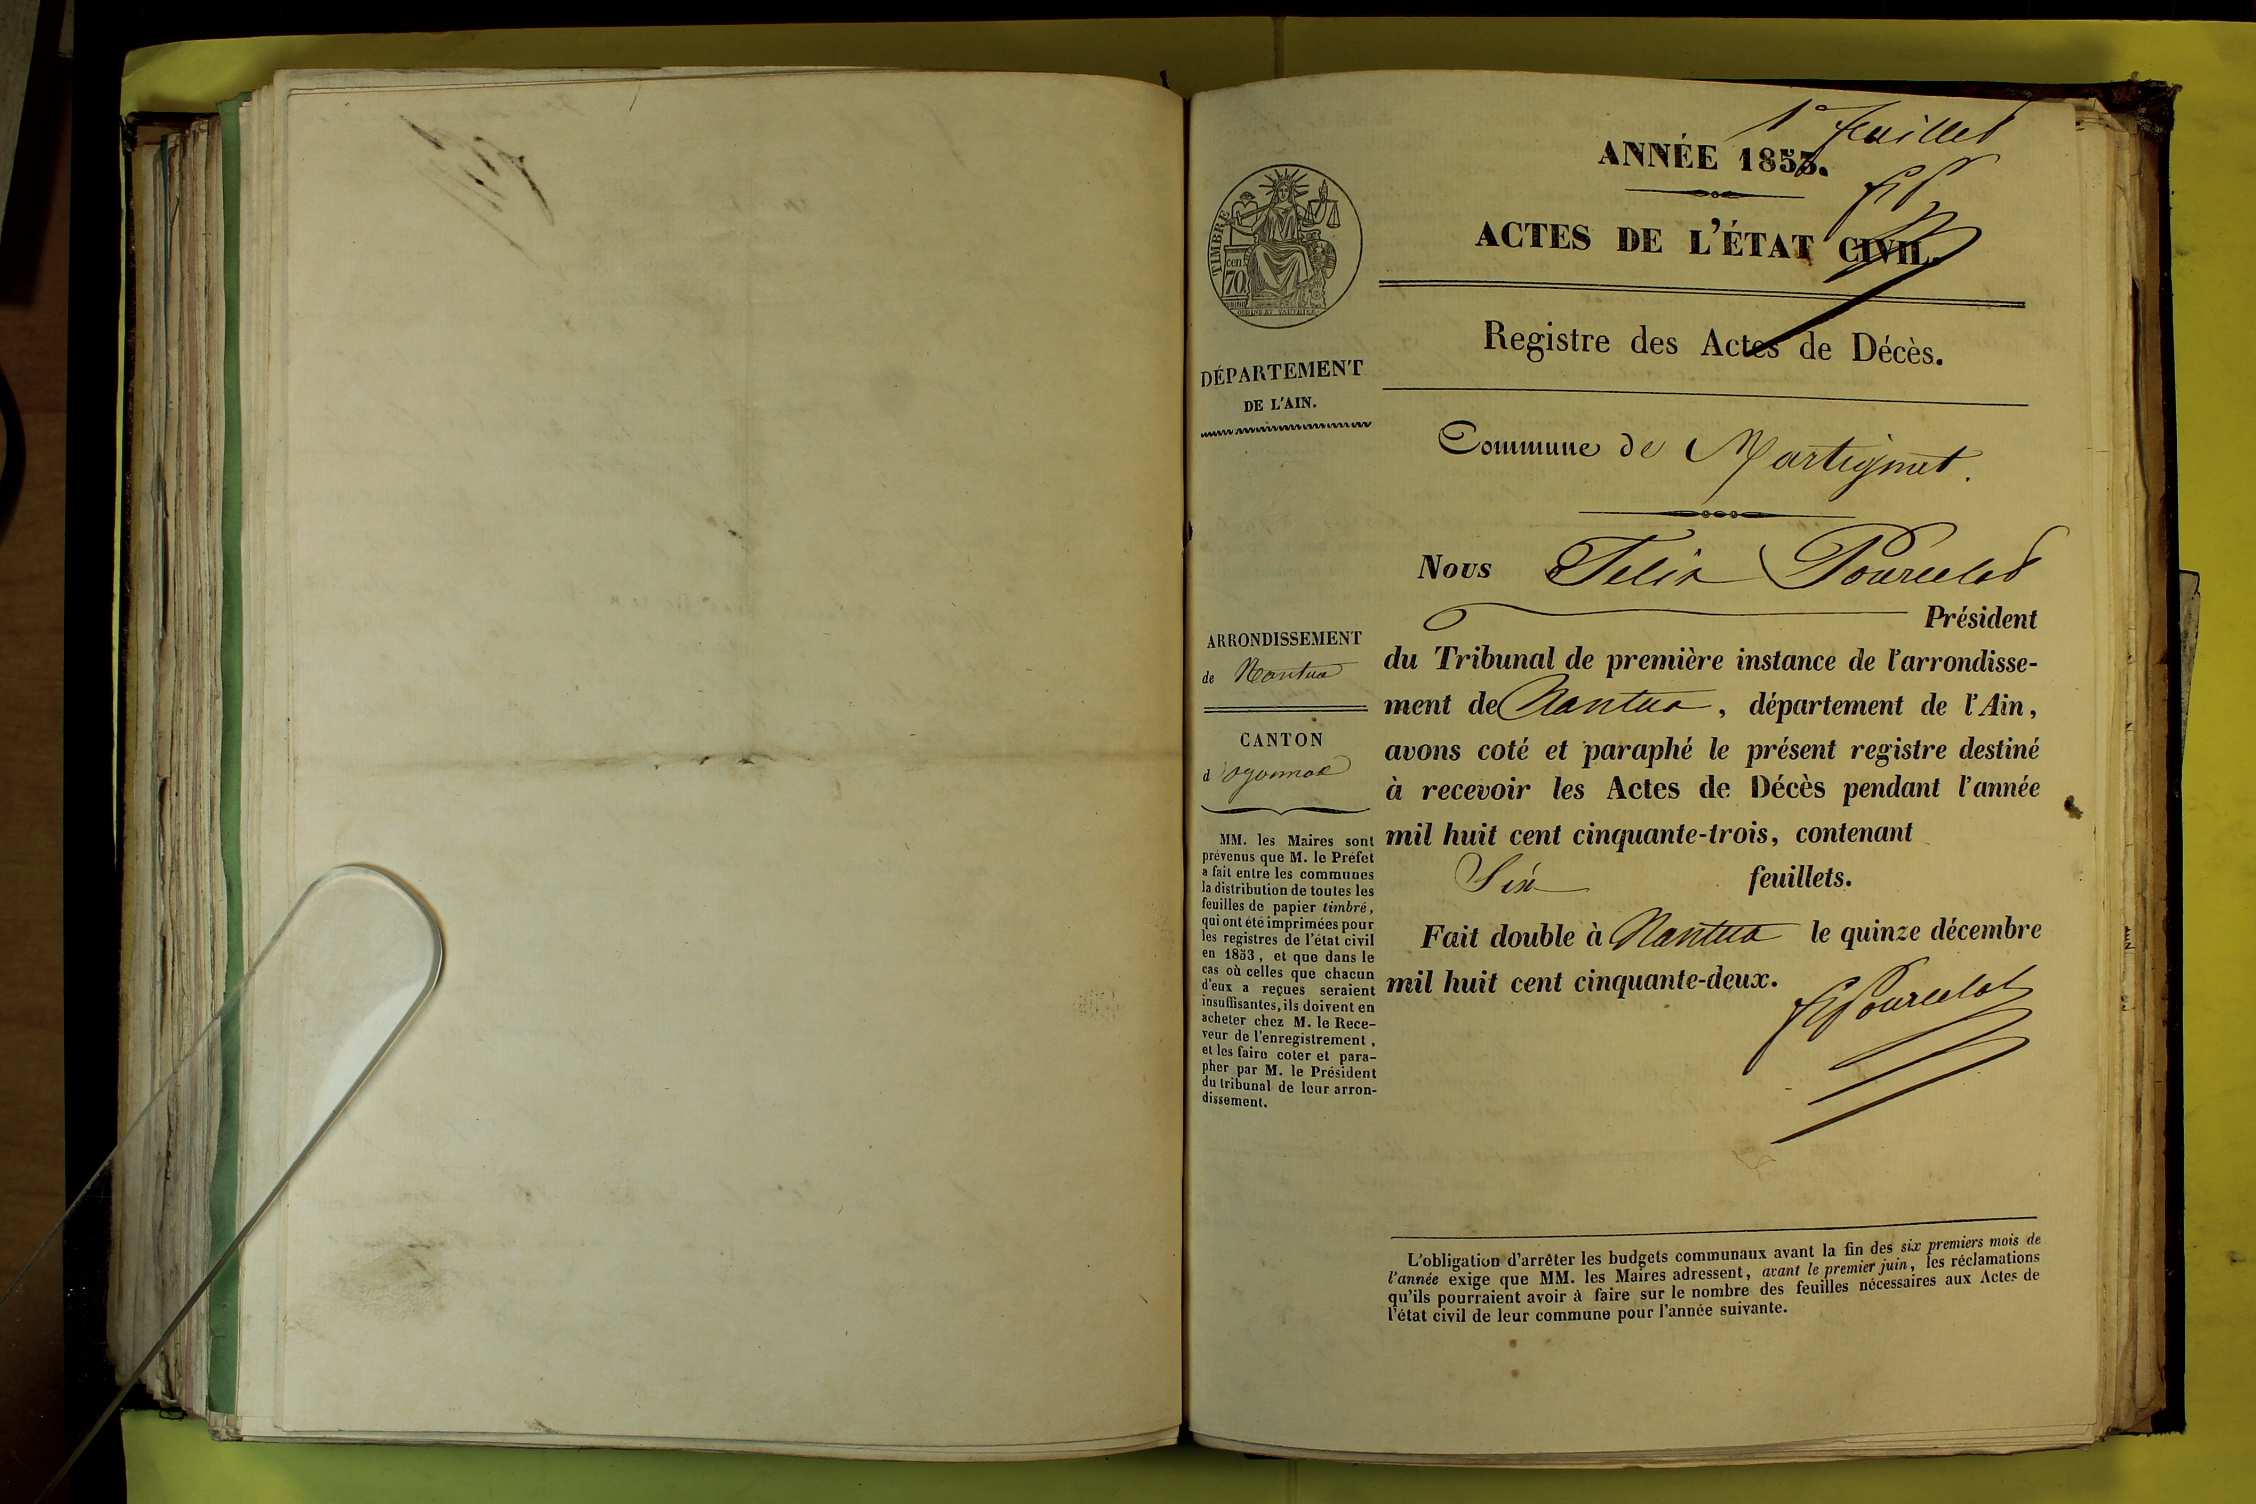 1er feuillet
ANNÉE 1853.
ACTES DE L'ÉTAT CIVIL.
TIMBRE
cent
70
DÉPARTEMENT
DE L'AIN.
Registre des Actes de Décès.
Commune de Martignat.
ARRONDISSEMENT
de Nantua
CANTON
d'Oyonnax
MM. les Maires sont
prévenus que M. le Préfet
a fait entre les communes
la distribution de toutes les
feuilles de papier timbré,
qui ont été imprimées pour
les registres de l'état civil
en 1853, et que dans le
cas où celles que chacun
d'eux a reçues seraient
insuffisantes, ils doivent en
acheter chez M. le Rece-
veur de l'enregistrement,
et les faire coter et para-
pher par M. le Président
du tribunal de leur arron-
dissement.
Nous Félix Pourcelot
Président
du Tribunal de première instance de l'arrondisse-
ment de Nantua, département de l'Ain,
avons coté et paraphé le présent registre destiné
à recevoir les Actes de Décès pendant l'année
mil huit cent cinquante-trois, contenant
Six feuillets.
Fait double à Nantua le quinze décembre
mil huit cent cinquante-deux.
F Pourcelot
L'obligation d'arrêter les budgets communaux avant la fin des six premiers mois de
l'année exige que MM. les Maires adressent, avant le premier juin, les réclamations
qu'ils pourraient avoir à faire sur le nombre des feuilles nécessaires aux Actes de
l'état civil de leur commune pour l'année suivante.